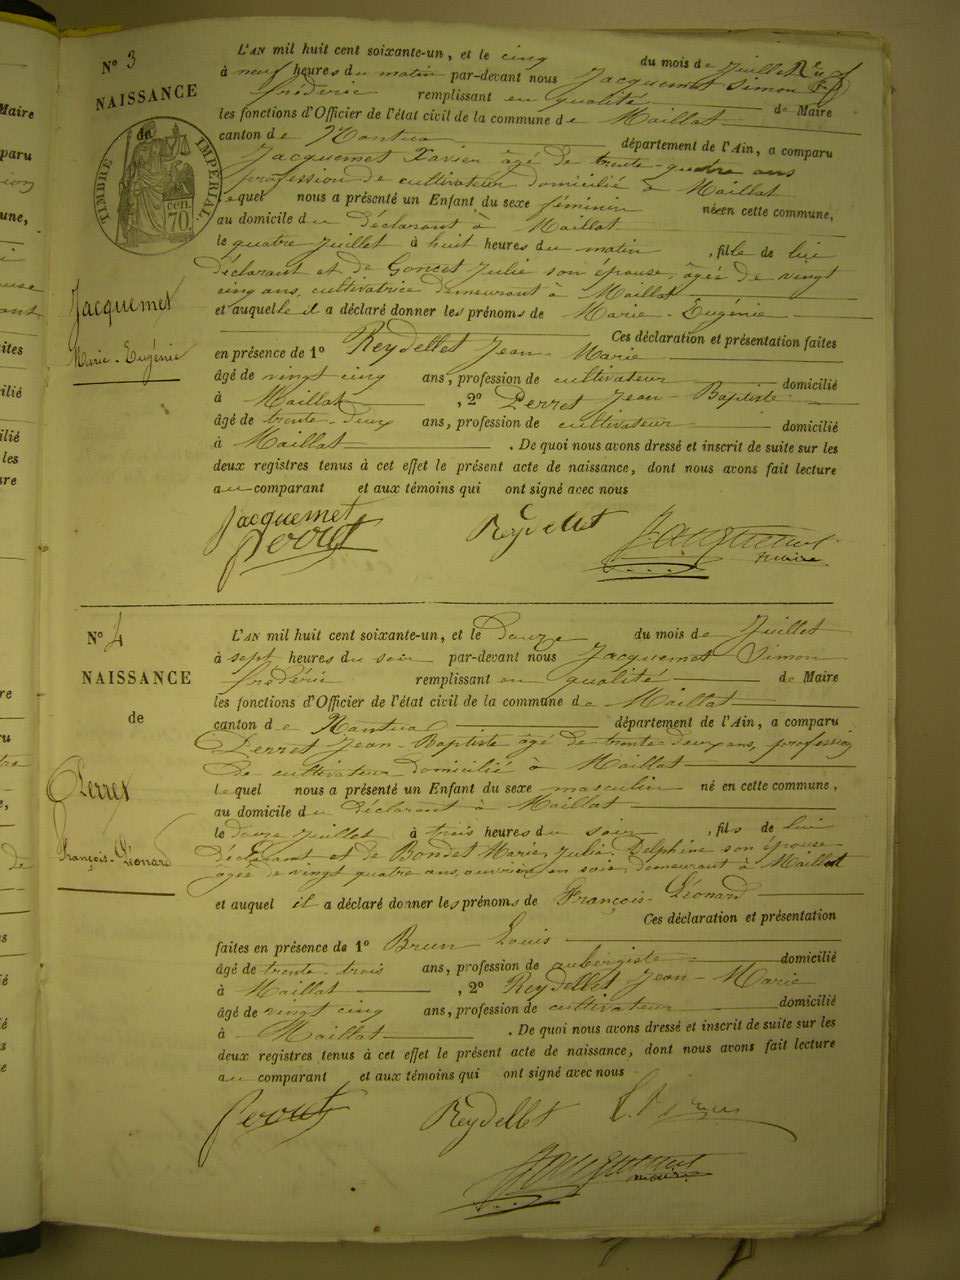 N° 3
NAISSANCE
de
TIMBRE IMPÉRIAL
70 cen.
Jacquemet
Marie-Eugénie
L'AN mil huit cent soixante-un, et le cinq du mois de Juillet
à neuf heures du matin par-devant nous Jacquemet Simon
frédéric remplissant en qualité de Maire
les fonctions d'Officier de l'état civil de la commune de Maillat
canton de Nantua département de l'Ain, a comparu
Jacquemet Xavier âgé de trente-quatre ans
profession de cultivateur domicilié à Maillat
lequel nous a présenté un Enfant du sexe féminin née en cette commune,
au domicile du déclarant à Maillat
le quatre Juillet à huit heures du matin, fille de lui
déclarant et de Goncet Julie son épouse, âgée de vingt
cinq ans, cultivatrice demeurant à Maillat
et auquelle il a déclaré donner les prénoms de Marie-Eugénie
Ces déclaration et présentation faites
en présence de 1° Reydellet Jean-Marie
âgé de vingt cinq ans, profession de cultivateur domicilié
à Maillat, 2° Perret Jean-Baptiste
âgé de trente-deux ans, profession de cultivateur domicilié
à Maillat. De quoi nous avons dressé et inscrit de suite sur les
deux registres tenus à cet effet le présent acte de naissance, dont nous avons fait lecture
au comparant et aux témoins qui ont signé avec nous
Jacquemet Reydellet Jacquemet
Perret maire
N° 4
NAISSANCE
de
Perret
François-Léonard
L'AN mil huit cent soixante-un, et le douze du mois de Juillet
à sept heures du soir par-devant nous Jacquemet Simon
frédéric remplissant en qualité de Maire
les fonctions d'Officier de l'état civil de la commune de Maillat
canton de Nantua département de l'Ain, a comparu
Perret Jean-Baptiste âgé de trente-deux ans, profession
de cultivateur domicilié à Maillat
lequel nous a présenté un Enfant du sexe masculin né en cette commune,
au domicile du déclarant à Maillat
le douze Juillet à trois heures du soir, fils de lui
déclarant et de Bondet Marie, Julie, Delphine son épouse
âgée de vingt quatre ans, ouvrière en soie, demeurant à Maillat
et auquel il a déclaré donner les prénoms de François-Léonard
Ces déclaration et présentation
faites en présence de 1° Brun Louis
âgé de trente-trois ans, profession de aubergiste domicilié
à Maillat, 2° Reydellet Jean-Marie
âgé de vingt cinq ans, profession de cultivateur domicilié
à Maillat. De quoi nous avons dressé et inscrit de suite sur les
deux registres tenus à cet effet le présent acte de naissance, dont nous avons fait lecture
au comparant et aux témoins qui ont signé avec nous
Perret Reydellet L. Brun
Jacquemet
maire